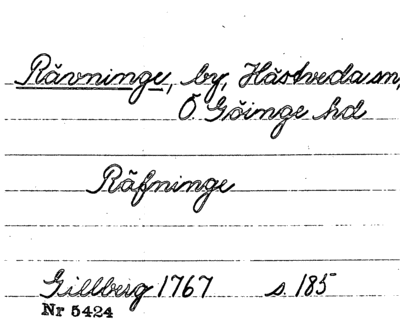 Rävninge, by, Hästveda sn,
Ö Göinge hd
Räfninge
Gillberg 1767 s 185
Nr 5424